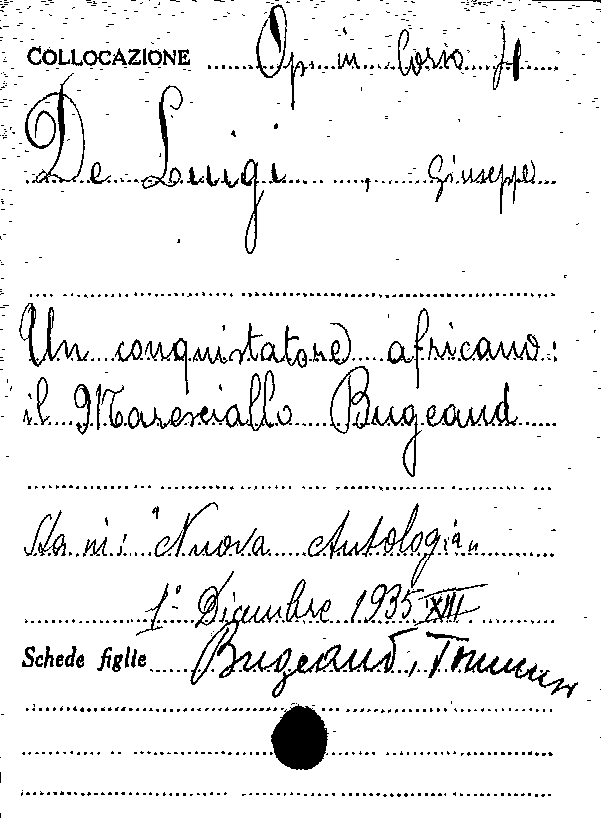 COLLOCAZIONE Op. in Corso
De Luigi, Giuseppe
Un conquistatore africano:
il Maresciallo Bugeaud
Sta in: "Nuova Antologia"
1° Dicembre 1935 XIII
Schede figlie Bugeaud, Tommaso